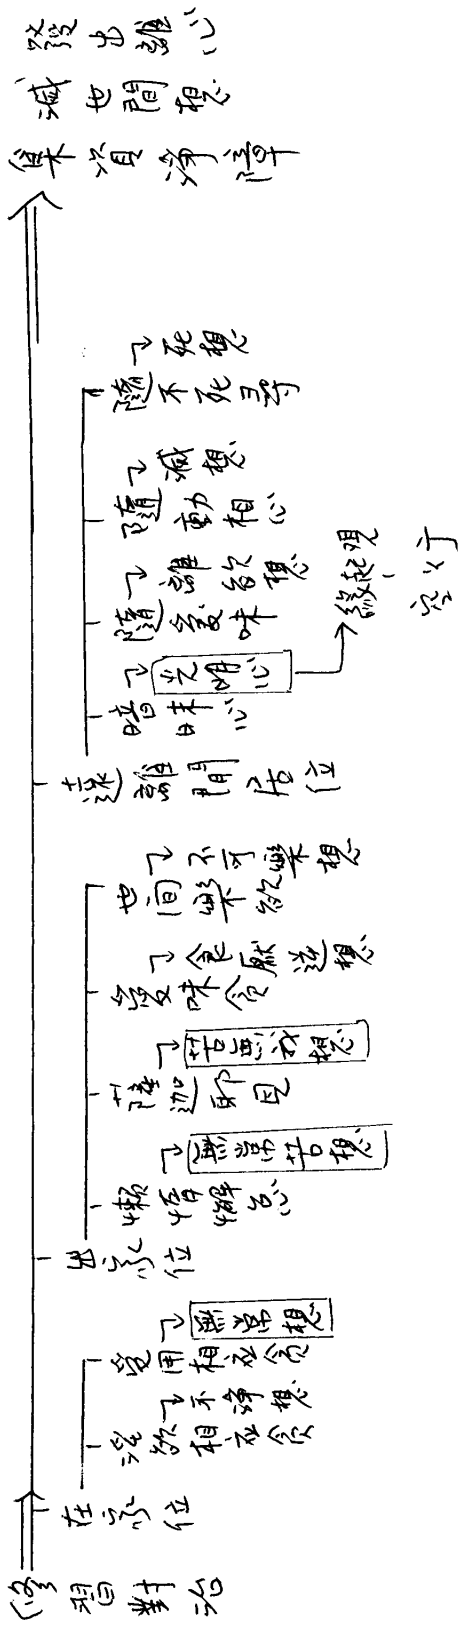 修習對治
在家位
淫欲相应貪
↳不淨想
受用相应貪
↳無常想
出家位
懶惰懈怠心
↳無常苦想
薩迦耶見
↳苦無我想
愛味食
↳食厭逆想
世间樂欲
↳不可樂想
遠離閒居位
暗昧心
↳光明心→緣起观
空行
隨愛味
↳離欲想
隨動相心
↳滅想
隨不死尋
↳死想
集資淨障
滅世間想
發出離心